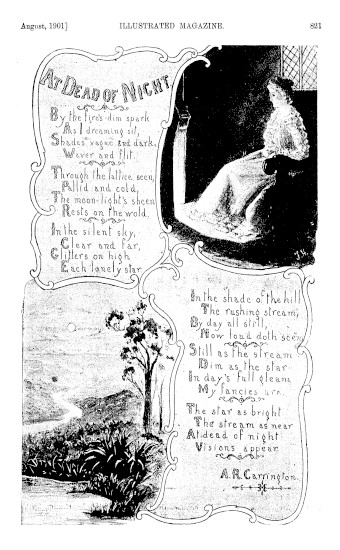 August, 1901]
ILLUSTRATED MAGAZINE.
821
AT DEAD OF NIGHT
By the fire's dim spark
As I dreaming sit,
Shades vague and dark,
Waver and flit.
Through the lattice seen,
Pallid and cold,
The moon-light's sheen
Rests on the wold.
In the silent sky,
Clear and far,
Glitters on high
Each lonely star
In the shade of the hill
The rushing stream,
By day all still,
Now loud doth seem
Still as the stream
Dim as the star
In day's full gleam
My fancies are
The star as bright
The stream as near
At dead of night
Visions appear
A.R. Carrington.